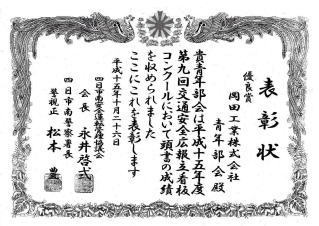 表彰状
優良賞
岡田工業株式会社
青年部会殿
貴青年部会は平成十五年度
第九回交通安全広報立看板
コンクールにおいて頭書の成績
を収められました
ここにこれを表彰します
平成十五年十月二十六日
四日市南安全運転管理協議会
会長 永井啓弍
四日市南警察署長
警視正 松本 豊